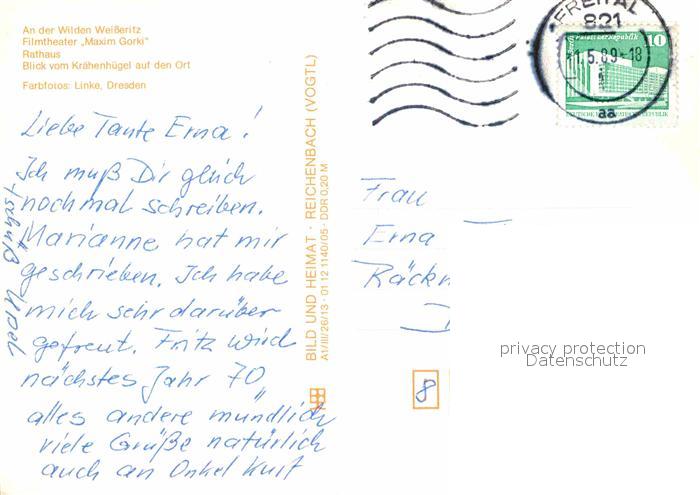 An der Wilden Weißeritz
Filmtheater „Maxim Gorki"
Rathaus
Blick vom Krähenhügel auf den Ort
Farbfotos: Linke, Dresden
Liebe Tante Erna!
Ich muß Dir gleich
nochmal schreiben.
Marianne hat mir
geschrieben. Ich habe
mich sehr darüber
gefreut. Fritz wird
nächstes Jahr 70
alles andere mündlich
viele Grüße natürlich
auch an Onkel Kurt
BILD UND HEIMAT · REICHENBACH (VOGTL)
A1/III/26/13 · 01 12 1140/05 · DDR 0,20 M
FREITAL
821
1.5.89-18
aa
10
Palast der Republik
DEUTSCHE DEMOKRATISCHE REPUBLIK
Frau
Erna
8
privacy protection
Datenschutz